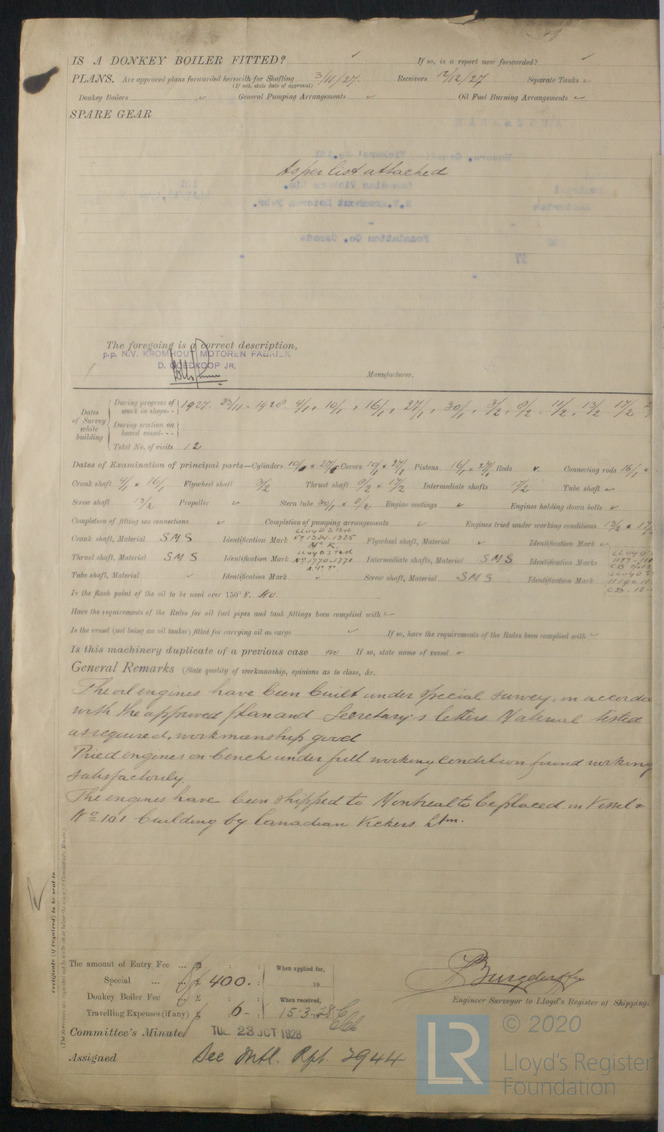 IS A DONKEY BOILER FITTED? ✓ If so, is a report now forwarded? ✓
PLANS. Are approved plans forwarded herewith for Shafting 3/11/27. Receivers 12/12/27 Separate Tanks ✓
(If not, state date of approval)
Donkey Boilers ✓ General Pumping Arrangements ✓ Oil Fuel Burning Arrangements ✓
SPARE GEAR
As per list attached
The foregoing is a correct description,
p.p. N.V. KROMHOUT MOTOREN FABRIEK
D. GOEDKOOP JR.
Manufacturer.
Dates of Survey while building
During progress of work in shops - - 1927. 23/11 - 1928 4/1 10/1 16/1 27/1 30/1 3/2 9/2 11/2 13/2 17/2
During erection on board vessel - - -
Total No. of visits 12
Dates of Examination of principal parts—Cylinders Covers Pistons 16/1 & 27/1 Rods ✓ Connecting rods 16/1 &
Crank shaft 4/1 & 16/1 Flywheel shaft 3/2 Thrust shaft 9/2 & 17/2 Intermediate shafts 17/2 Tube shaft ✓
Screw shaft 13/2 Propeller ✓ Stern tube 30/1 & 9/2 Engine seatings ✓ Engines holding down bolts ✓
Completion of fitting sea connections ✓ Completion of pumping arrangements ✓ Engines tried under working conditions 13/2 & 17/
Crank shaft, Material S M S Identification Mark Flywheel shaft, Material ✓ Identification Mark ✓
Thrust shaft, Material S M S Identification Mark Intermediate shafts, Material S M S Identification Marks
Tube shaft, Material ✓ Identification Mark ✓ Screw shaft, Material S M S Identification Mark
Is the flash point of the oil to be used over 150° F.
Have the requirements of the Rules for oil fuel pipes and tank fittings been complied with ✓
Is the vessel (not being an oil tanker) fitted for carrying oil as cargo ✓ If so, have the requirements of the Rules been complied with ✓
Is this machinery duplicate of a previous case no If so, state name of vessel ✓
General Remarks (State quality of workmanship, opinions as to class, &c.
The oil engines have been built under special survey, in accorda
with the approved plan and Secretary's letters Material tested
as required, workmanship good
Tried engines on bench under full working condition found working
satisfactorily
The engines have been shipped to Montreal to be placed in Vessel
No 101 building by Canadian Vickers Ltm.
The amount of Entry Fee ... £ : : When applied for,
Special ... £ 400. : 19
Donkey Boiler Fee £ : : When received,
Travelling Expenses (if any) £ 6- : 15.3.28
Burgdorffer
Engineer Surveyor to Lloyd's Register of Shipping.
Committee's Minute TUE. 23 OCT 1928
Assigned See Mtl. Rpt. 2944
LR © 2020
Lloyd's Register
Foundation